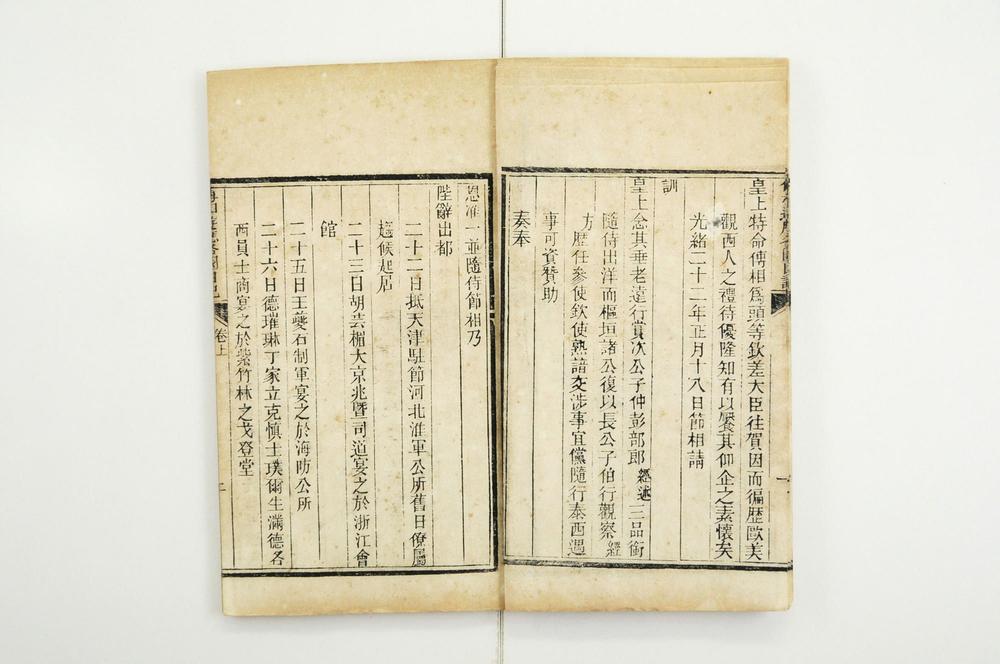 皇上特命傅相爲頭等欽差大臣往賀因而徧歷歐美
觀西人之禮待優隆知有以饜其仰企之素懷矣
光緒二十二年正月十八日節相請
訓
皇上念其垂老遠行賞次公子仲彭部郎經述三品銜
隨侍出洋而樞垣諸公復以長公子伯行觀察經
方歷任參使欽使熟諳交涉事宜儻隨行泰西遇
事可資贊助
奏奉
恩准一並隨侍節相乃
陛辭出都
二十二日抵天津駐節河北淮軍公所舊日僚屬
趨候起居
二十三日胡芸楣大京兆曁司道宴之於浙江會
館
二十五日王夔石制軍宴之於海防公所
二十六日德璀琳丁家立克慎士璞爾生滿德各
西員士商宴之於紫竹林之戈登堂
卷上
二